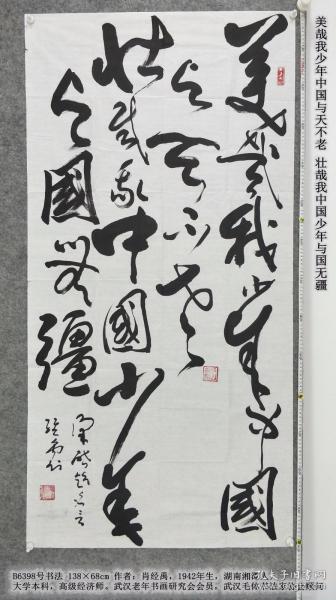 美哉我少年中國
与天不老
壮哉我中國少年
与國無疆
梁启超之言
经禹书
美哉我少年中国与天不老 壮哉我中国少年与国无疆
B6398号书法 138×68cm 作者：肖经禹，1942年生，湖南湘潭人，
大学本科，高级经济师。武汉老年书画研究会会员，武汉毛体书法家协会顾问